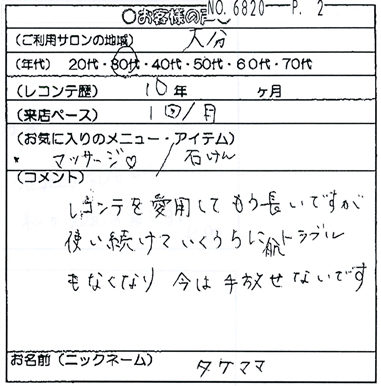 NO. 6820 P. 2
○お客様の声○
(ご利用サロンの地域) 大分
(年代) 20代・30代・40代・50代・60代・70代
(レコンテ歴) 10年 ヶ月
(来店ペース) 1回/月
(お気に入りのメニュー・アイテム)
・マッサージ♡ / 石けん
(コメント)
レコンテを愛用してもう長いですが
使い続けていくうちに肌トラブル
もなくなり 今は手放せないです
お名前(ニックネーム) タケママ